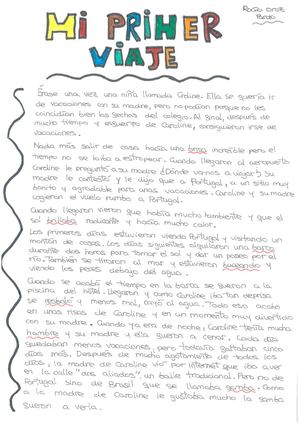 MI PRIMER
VIAJE
Rocío
Érase una vez una niña llamada Caroline. Ella se quería ir
de vacaciones con su madre, pero no podían porque no les
coincidían bien las fechas del colegio. Al final, después de
mucho tiempo y esfuerzo de Caroline, consiguieron irse de
vacaciones.
Nada más salir de casa había una brisa increíble pero el
tiempo no se le iba a estropear. Cuando llegaron al aeropuerto
Caroline le preguntó a su madre ¿Dónde vamos a viajar? Su
madre le contestó y le dijo que a Portugal, a un sitio muy
bonito y agradable para unas vacaciones. Caroline y su madre
cogieron el vuelo rumbo a Portugal.
Cuando llegaron vieron que había mucho ambiente y que el
sol brillaba radiante y hacía mucho calor.
Los primeros días estuvieron viendo Portugal y visitando un
montón de cosas. Los días siguientes alquilaron una barca
durante dos horas para tomar el sol y dar un paseo por el
río. También se tiraron al mar y estuvieron buceando y
viendo los peces debajo del agua.
Cuando se acabó el tiempo en la barca se fueron a la
piscina del hotel. Llegaron y como Caroline iba tan deprisa
se resbaló y menos mal, cayó al agua. Todo eso acabó
en unas risas de Caroline y en un momento muy divertido
con su madre. Cuando ya era de noche, Caroline tenía mucha
hambre y su madre y ella fueron a cenar. Cada día
quedaban menos vacaciones, pero todavía faltaban cinco
días más. Después de mucho agotamiento de todos los
días, la madre de Caroline vio por internet que iba a ver
en la calle "dos aliados", un baile tradicional. Pero no de
Portugal sino de Brasil que se llamaba samba. Como
a la madre de Caroline le gustaba mucho la samba
fueron a verla.